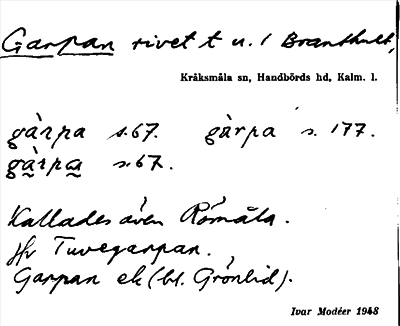 Garpan rivet t u. / Branthult,
Kråksmåla sn, Handbörds hd, Kalm. l.
gàrpa s. 67. gàrpa s. 177.
gàrpa s. 67.
Kallades även Römåla.
Hr Tuvegarpan.
Garpan ek (bl. Grönlid).
Ivar Modéer 1948